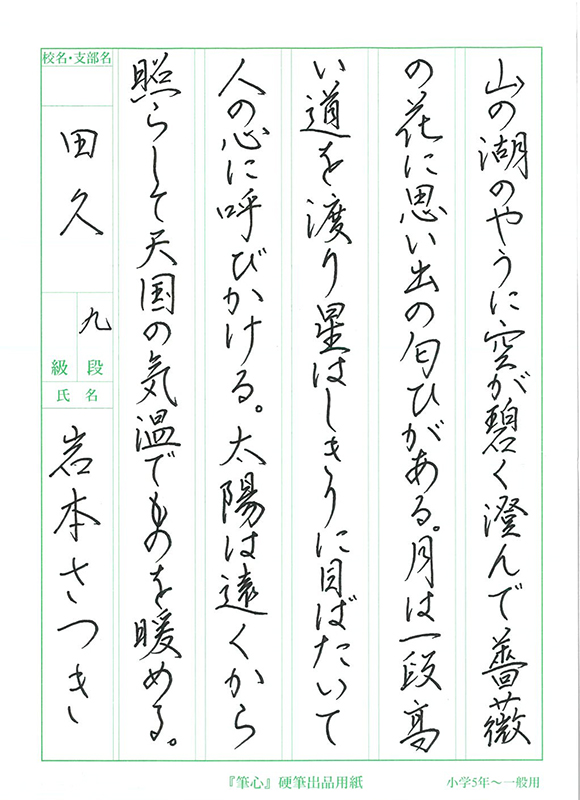 山の湖のやうに空が碧く澄んで薔薇
の花に思い出の匂ひがある。月は一段高
い道を渡り星はしきりに目ばたいて
人の心に呼びかける。太陽は遠くから
照らして天国の気温でものを暖める。
校名・支部名
田久
九段
級
氏名
岩本さつき
『筆心』硬筆出品用紙
小学5年〜一般用